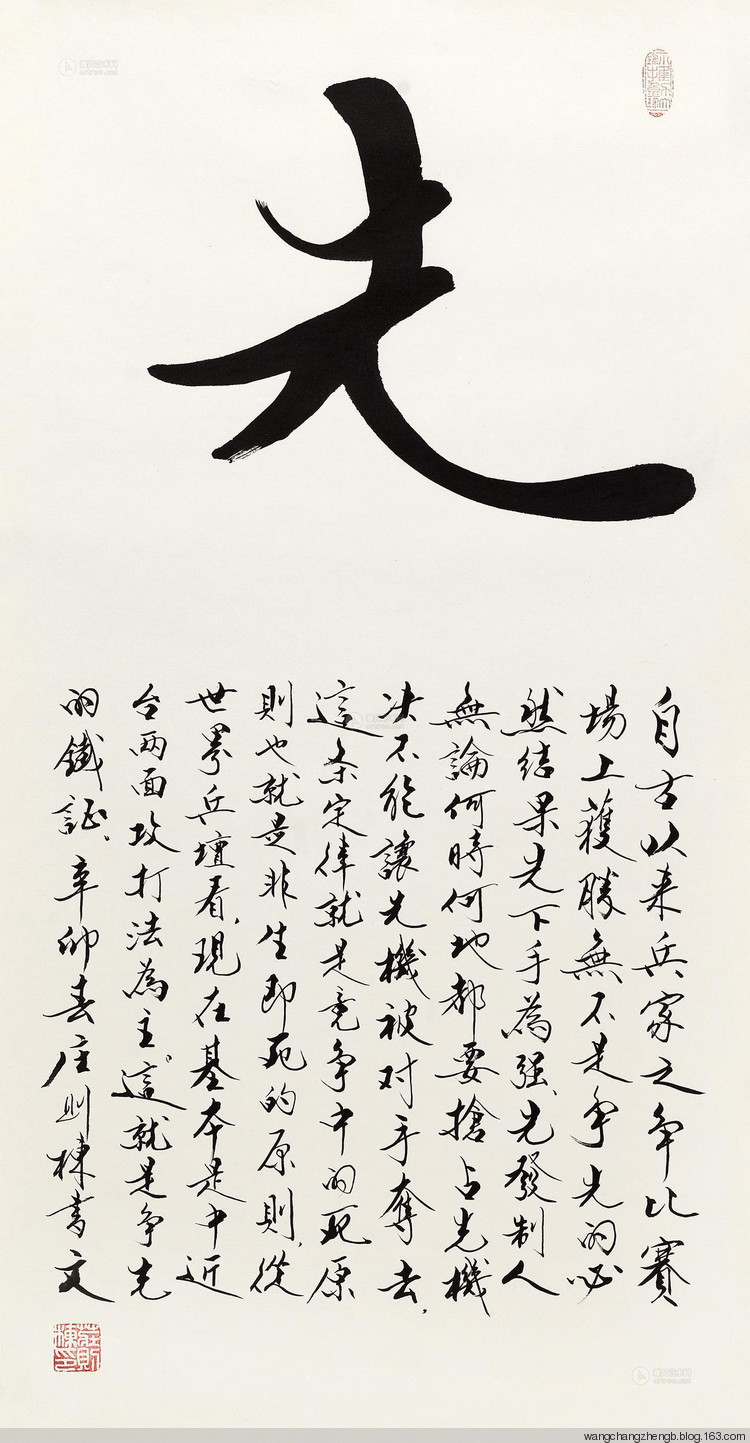 先
自古以来兵家之争比賽
場上獲勝無不是争先的必
然结果先下手為强、先發制人
無論何時何地都要搶占先機
决不能讓先機被对手奪去，
這条定律就是竞争中的死原
則也就是非生即死的原則，從
世界兵壇看，現在基本是中近
台两面攻打法為主。這就是争先
的鐵証、辛卯春庄則棟書文
莊則棟印
wangchangzhengb.blog.163.com